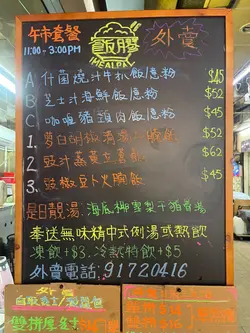 午市套餐
11:00 - 3:00PM
飯膠
外賣
A 什菌燒汁牛扒飯/意粉 $45
B 芝士汁海鮮飯/意粉 $52
C 咖喱豬頸肉飯/意粉 $52
1. 蘿白胡椒清湯腩飯 $52
2. 豉汁蒸飯 $62
3. 豉椒豆卜火腩飯 $45
是日靚湯:海底椰雪梨干豬骨湯
奉送無味精中式例湯或熱飲
凍飲+$3. 冷熱特飲+$5
外賣電話:91720416
雙拼